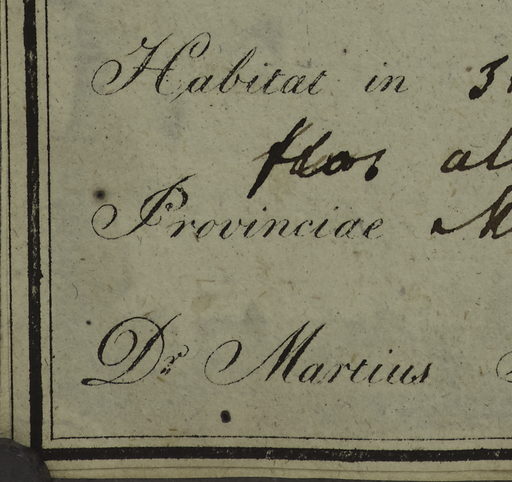 Habitat in
flos al
Provinciae M
Dr. Martius